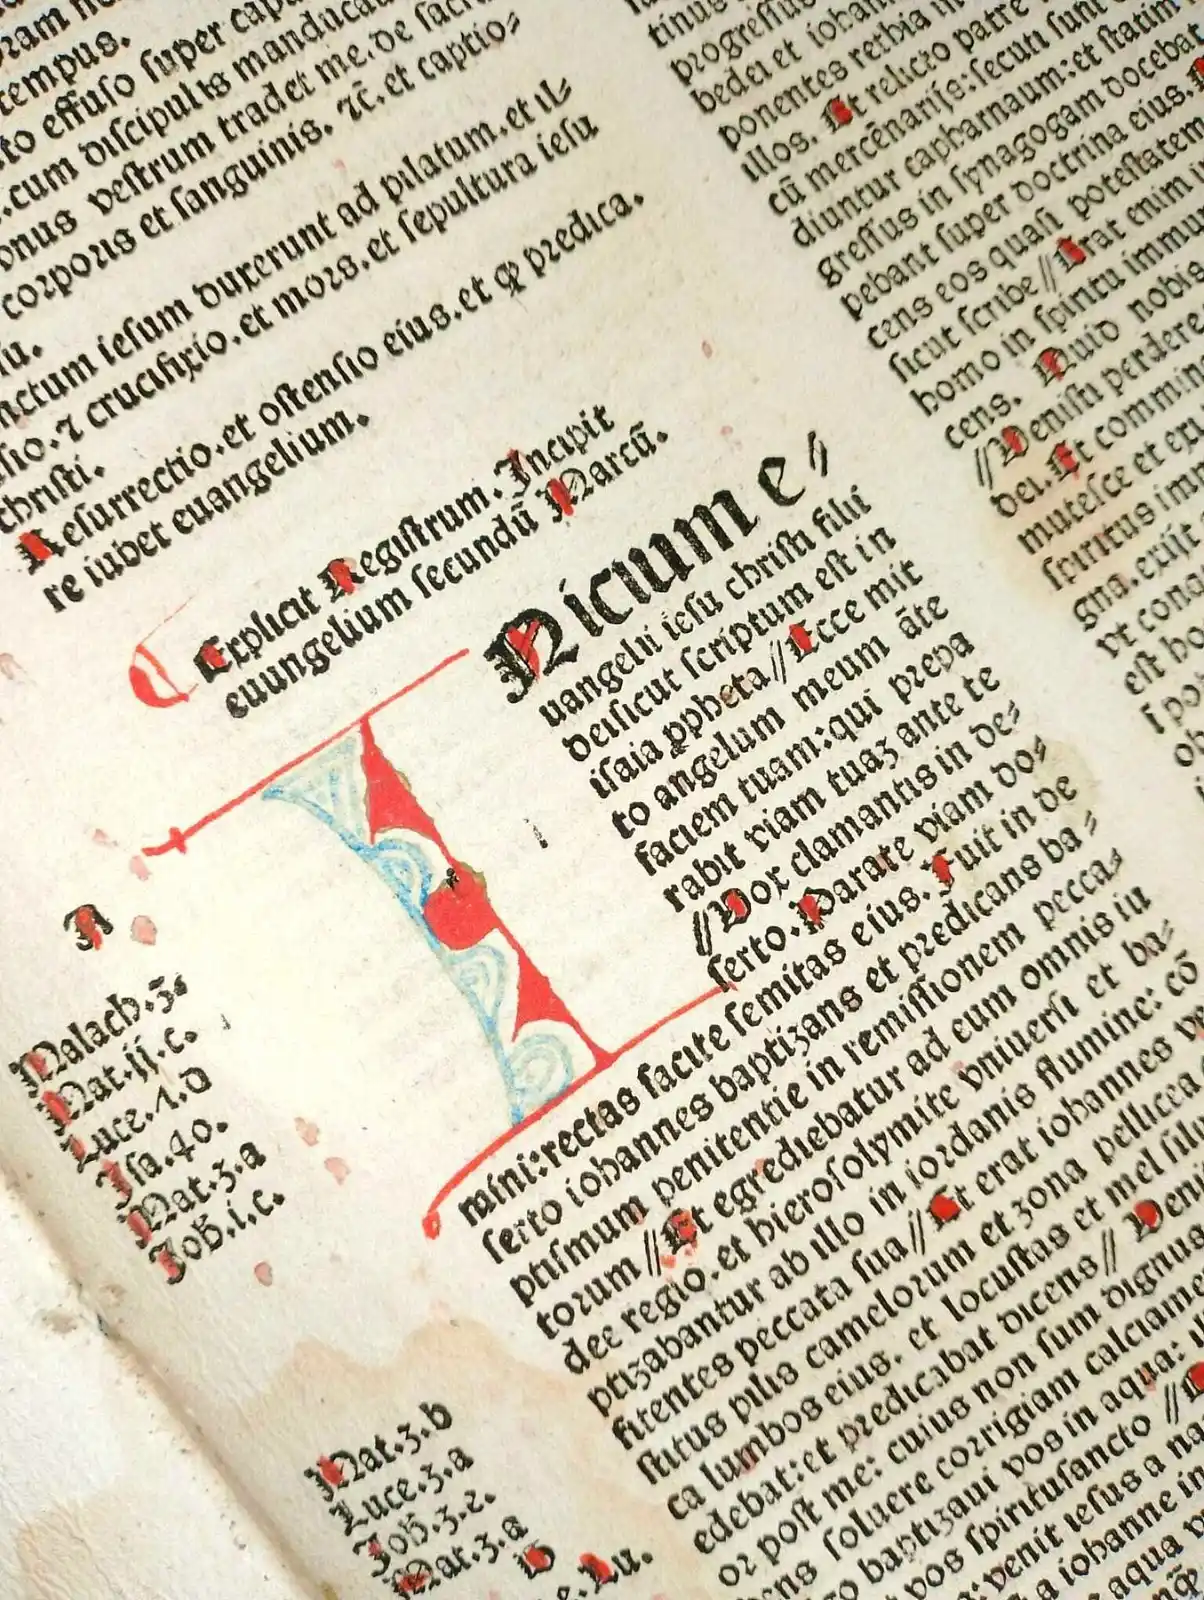 tempus.
to effuso super capu
.cum discipulis manduca
vestrum tradet me. de sacra
corporis et sanguinis. ⁊c̄. et captio⸗
nctum iesum duxerunt ad pilatum. et il⸗
sio. ⁊ crucifixio. et mors. et sepultura iesu
christi.
Resurrectio. et ostensio eius. et ꝙ predica.
re iubet euangelium.
Explicit Registrum. Incipit
euungelium secundū Marcū.
INicium e⸗
uangelii iesu christi filii
dei sicut scriptum est in
isaia ꝓpheta // Ecce mit
to angelum meum āte
faciem tuam: qui prepa
rabit viam tuaꝫ ante te
// Vox clamantis in de⸗
serto. Parate viam do⸗
mini: rectas facite semitas eius. Fuit in de
serto iohannes baptizans et predicans ba⸗
ptismum penitentie in remissionem pecca⸗
torum // Et egrediebatur ad eum omnis iu
dee regio. et hierosolymite vniuersi et ba⸗
ptizabantur ab illo in iordanis flumine: cō
fitentes peccata sua // Et erat iohannes ve
stitus pilis camelorum et zona pellicea
ca lumbos eius. et locustas et mel silu
edebat: et predicabat dicens // Veni
or post me: cuius non sum dignus
soluere corrigiam calciame
baptizaui vos in aqua:
vos spiritusancto //
venit iesus a na
a iohanne in
A
Malach. 3.
Mat. ii. c.
Luce. 1. d
Isa. 40.
Mat. 3. a
Joh. i. c.
Mat. 3. b
Luce. 3. a
Joh. 3. e.
Mat. 3. a
B
Lu.
tinus
progressus
bedei et iohan
ponentes rethia in
illos. Et relicto patre
cū mercēnariis: secuti sunt
diuntur capharnaum: et statim
gressus in synagogam docebat
pebant super doctrina eius.
cens eos quasi potestatem
sicut scribe // Erat enim
homo in spiritu immu
cens. Quid nobis
// Venisti perdere
dei. Et commin
mutesce et exi
spiritus imu
gna. exiit
vt conq
est ho